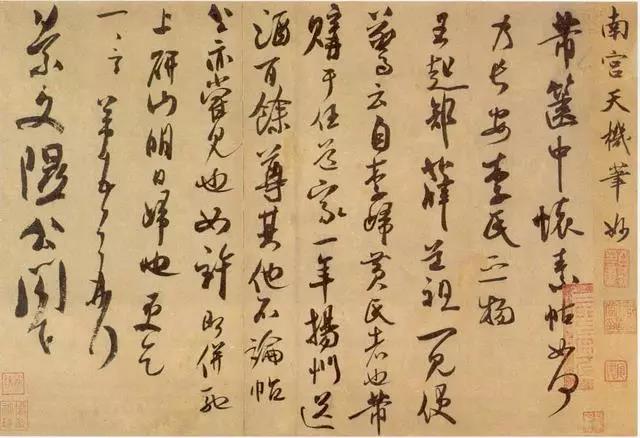 南宫天機筆妙
芾篋中懷素帖如何
乃長安李氏之物
王起部薛道祖一見便
驚云自李歸黄氏者也芾
購于任道家一年揚州送
酒百餘尊其他不論帖
公亦嘗見也如許即併馳
上研山明日歸也更乞
一言芾頓首再拜
景文隰公閤下